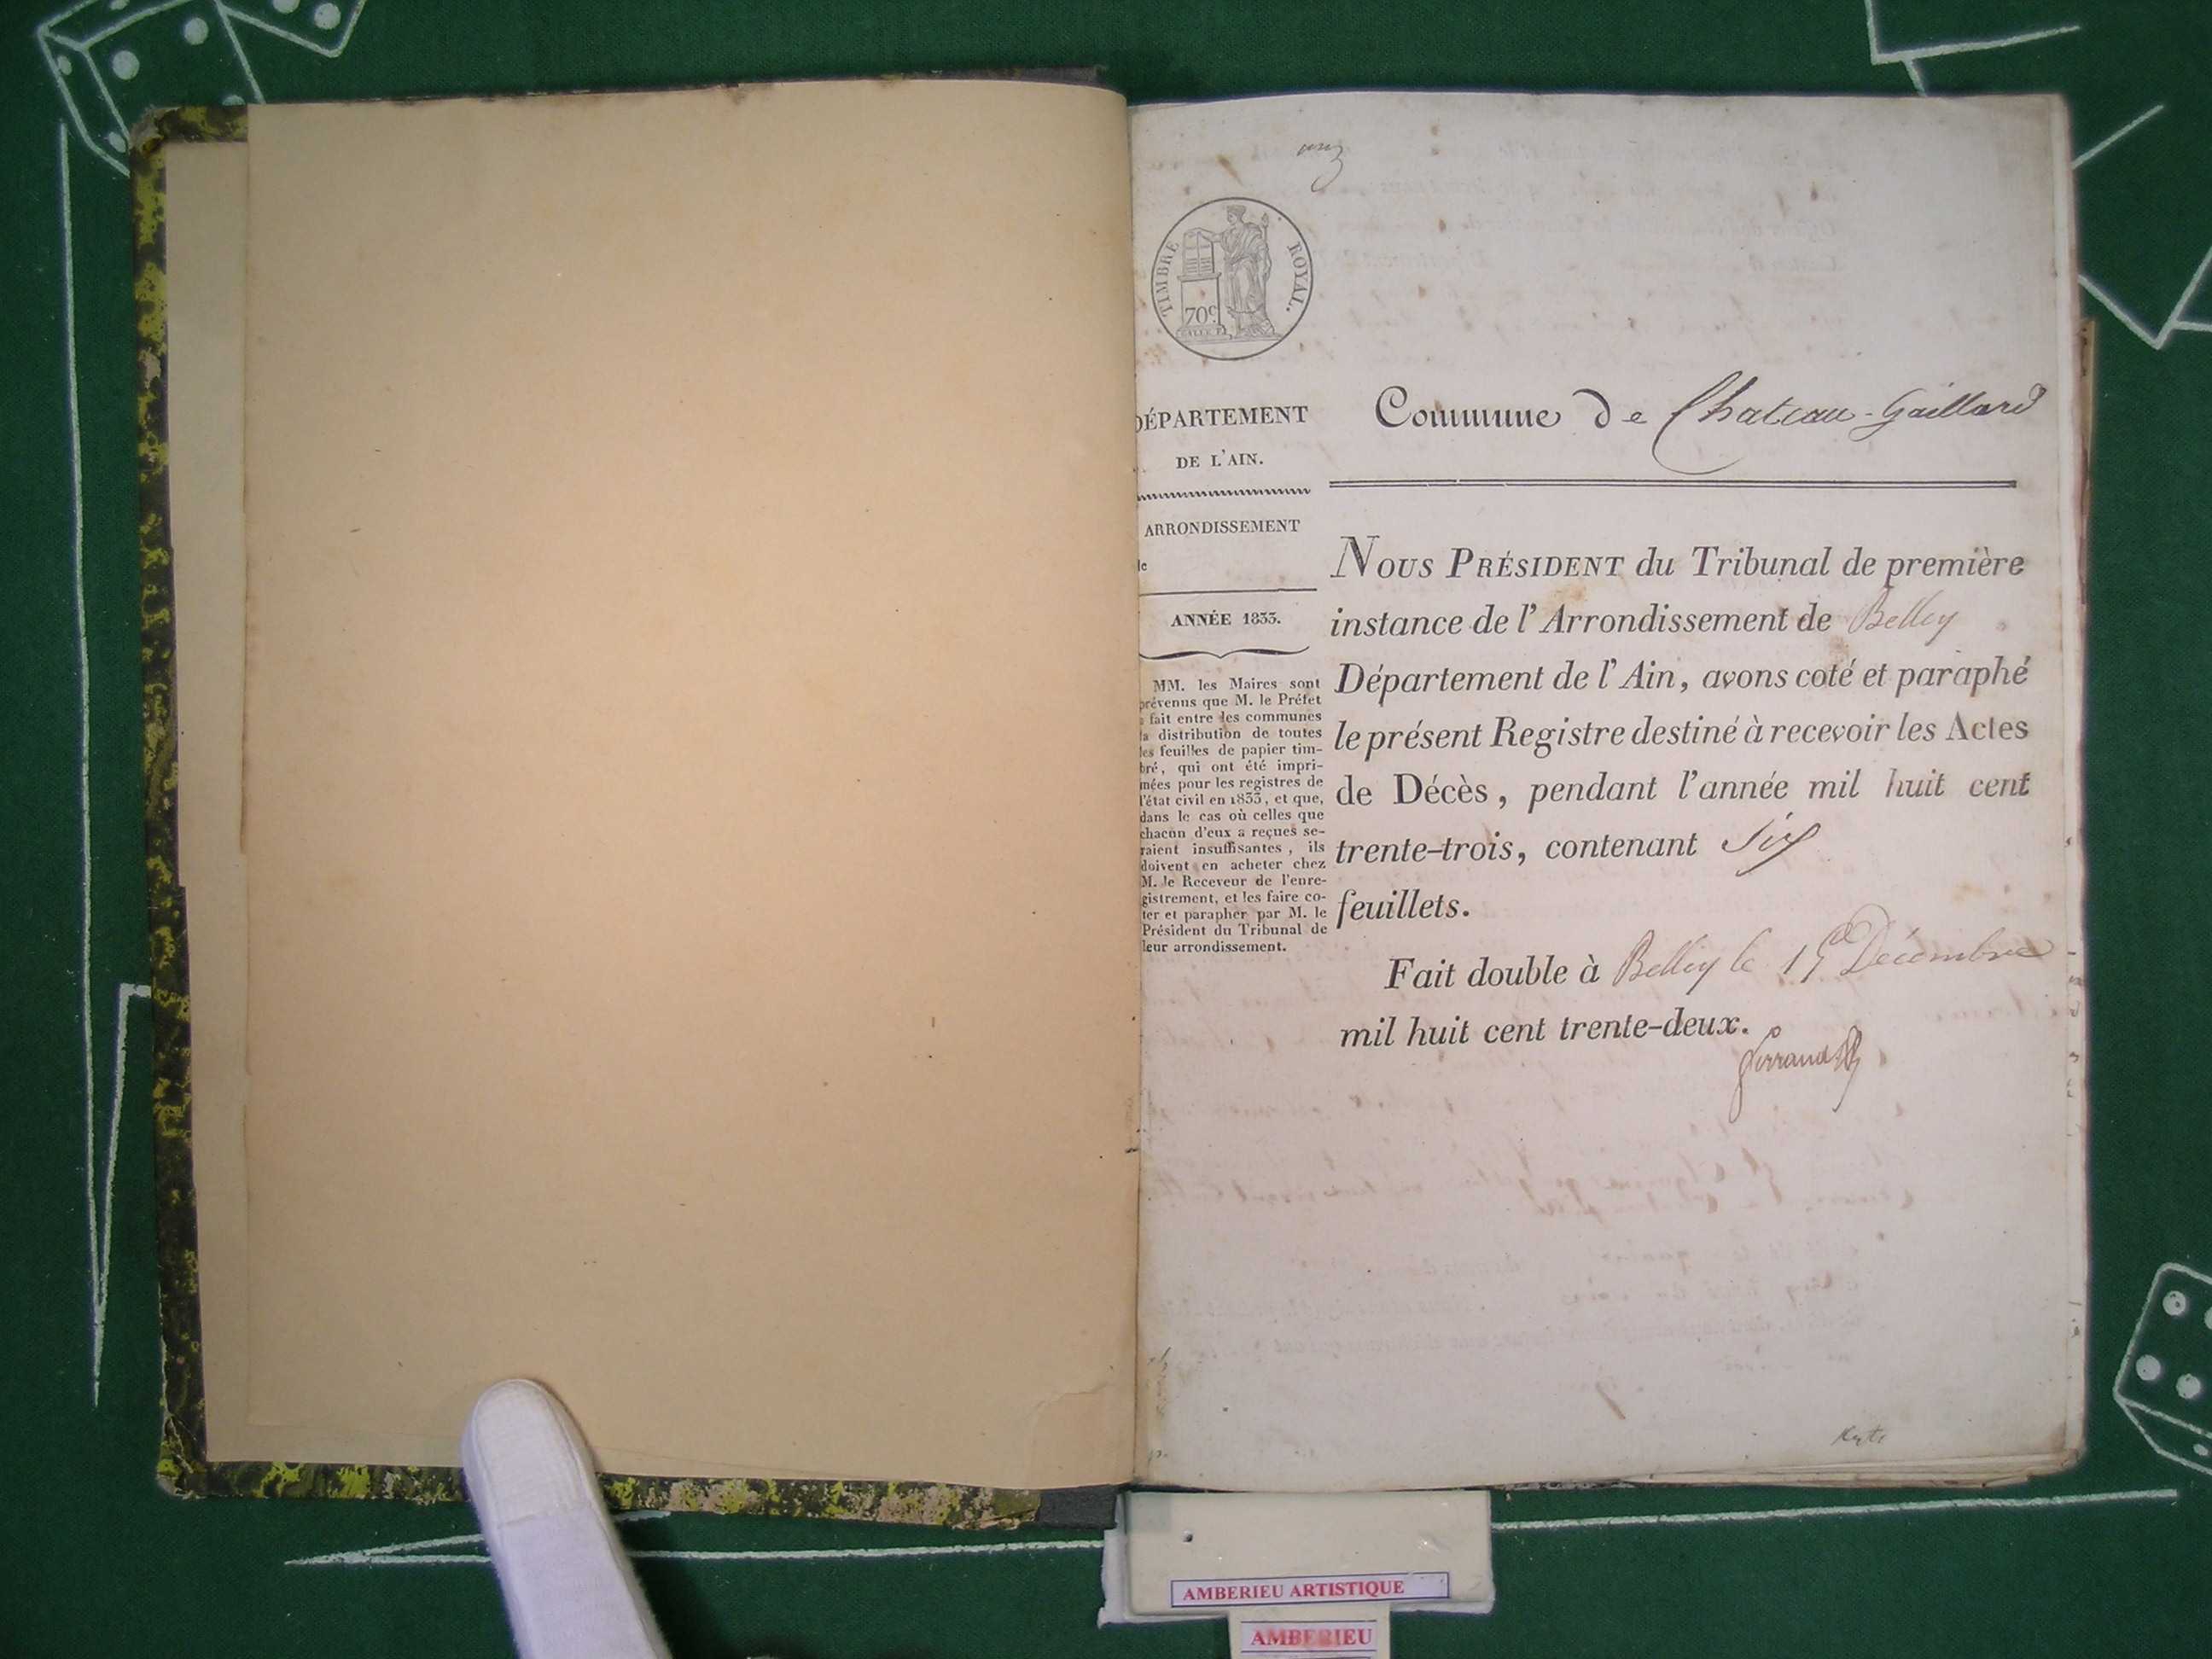 TIMBRE ROYAL.
70c
DÉPARTEMENT
DE L'AIN.
ARRONDISSEMENT
ANNÉE 1833.
MM. les Maires sont
prévenus que M. le Préfet
a fait entre les communes
la distribution de toutes
les feuilles de papier tim-
bré, qui ont été impri-
mées pour les registres de
l'état civil en 1833, et que,
dans le cas où celles que
chacun d'eux a reçues se-
raient insuffisantes, ils
doivent en acheter chez
M. le Receveur de l'enre-
gistrement, et les faire co-
ter et parapher par M. le
Président du Tribunal de
leur arrondissement.
Commune de Chateau-Gaillard
NOUS PRÉSIDENT du Tribunal de première
instance de l'Arrondissement de Belley
Département de l'Ain, avons coté et paraphé
le présent Registre destiné à recevoir les Actes
de Décès, pendant l'année mil huit cent
trente-trois, contenant Six
feuillets.
Fait double à Belley le 15 Décembre
mil huit cent trente-deux.
AMBERIEU ARTISTIQUE
AMBERIEU